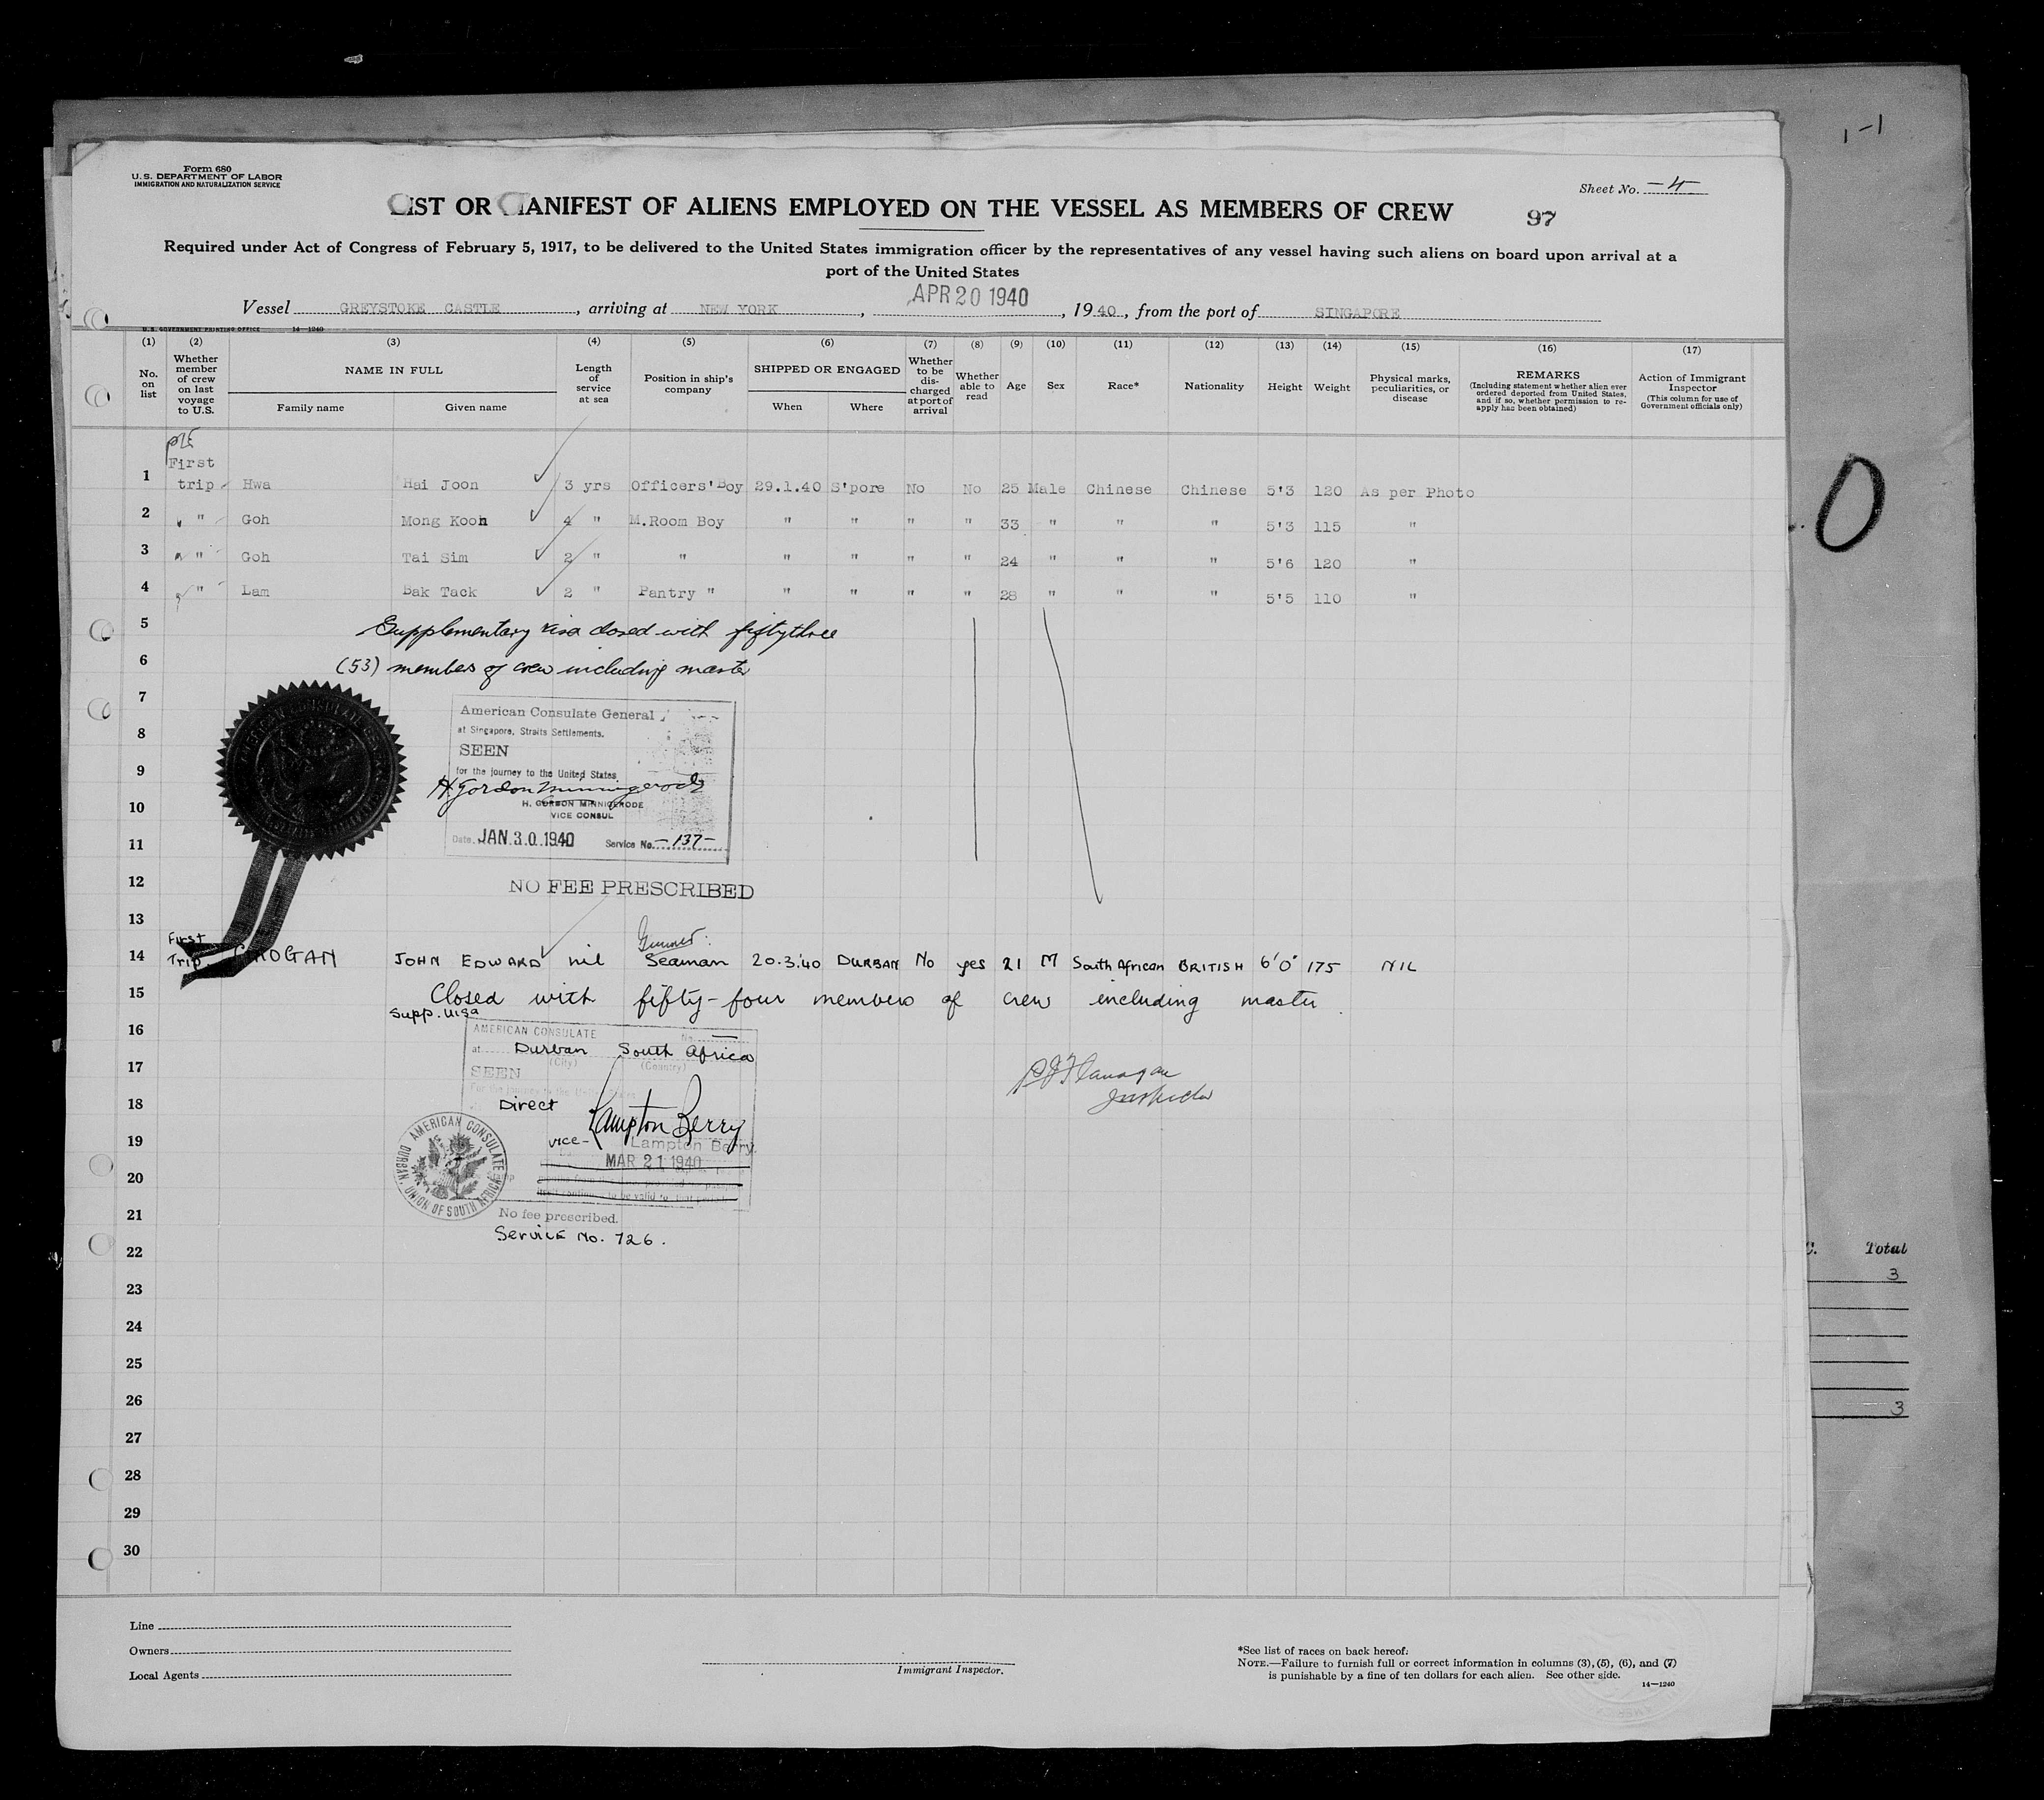 1-1
Form 680
U.S. DEPARTMENT OF LABOR
IMMIGRATION AND NATURALIZATION SERVICE
Sheet No. -4
LIST OR MANIFEST OF ALIENS EMPLOYED ON THE VESSEL AS MEMBERS OF CREW
97
Required under Act of Congress of February 5, 1917, to be delivered to the United States immigration officer by the representatives of any vessel having such aliens on board upon arrival at a
port of the United States
Vessel GREYSTOKE CASTLE, arriving at NEW YORK, APR 20 1940, 1940, from the port of SINGAPORE
U.S. GOVERNMENT PRINTING OFFICE 14-1240
(1) (2) (3) (4) (5) (6) (7) (8) (9) (10) (11) (12) (13) (14) (15) (16) (17)
No. on list Whether member of crew on last voyage to U.S. NAME IN FULL Family name Given name Length of service at sea Position in ship's company SHIPPED OR ENGAGED When Where Whether to be discharged at port of arrival Whether able to read Age Sex Race* Nationality Height Weight Physical marks, peculiarities, or disease REMARKS (Including statement whether alien ever ordered deported from United States, and if so, whether permission to reapply has been obtained) Action of Immigrant Inspector (This column for use of Government officials only)
First
1 trip Hwa Hai Joon 3 yrs Officers' Boy 29.1.40 S'pore No No 25 Male Chinese Chinese 5'3 120 As per Photo
2 " Goh Mong Kooh 4 " M.Room Boy " " " " 33 " " " 5'3 115 "
3 " Goh Tai Sim 2 " " " " " " 24 " " " 5'6 120 "
4 " Lam Bak Tack 2 " Pantry " " " " " 28 " " " 5'5 110 "
5 Supplementary visa closed with fiftythree
6 (53) members of crew including master
7
American Consulate General
at Singapore, Straits Settlements.
8
SEEN
9 for the journey to the United States
H Gordon Minnigerode
10 H. GORDON MINNIGERODE
VICE CONSUL
11 Date JAN 30 1940 Service No. -137-
12 NO FEE PRESCRIBED
13
First Gunner
14 Trip GROGAN JOHN EDWARD nil Seaman 20.3.'40 DURBAN No yes 21 M South African BRITISH 6'0" 175 NIL
15 Closed with fifty-four members of crew including master.
Supp. visa
16 AMERICAN CONSULATE No.
at Durban South Africa
(City) (Country)
17 SEEN
P J Flanagan
Inspector
18 Direct
Lampton Berry
19 vice- Lampton Berry
MAR 21 1940
AMERICAN CONSULATE DURBAN, UNION OF SOUTH AFRICA
20
21 No fee prescribed.
Service No. 726.
22
23
24
25
26
27
28
29
30
O
C. Total
3
3
Line
Owners
Local Agents
Immigrant Inspector.
*See list of races on back hereof.
NOTE.—Failure to furnish full or correct information in columns (3), (5), (6), and (7)
is punishable by a fine of ten dollars for each alien. See other side.
14—1240